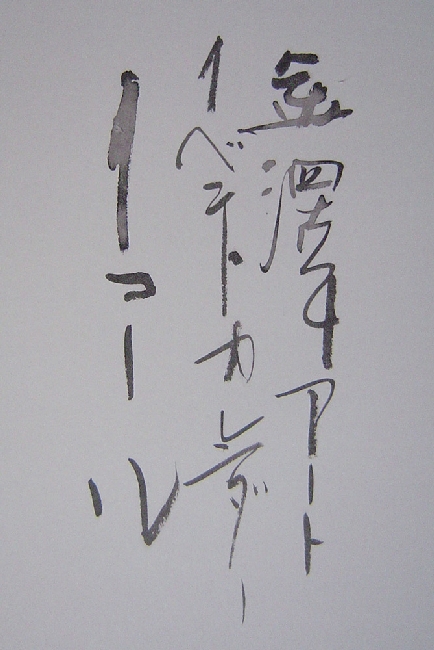 金澤アート
イベントカレンダー
イコール